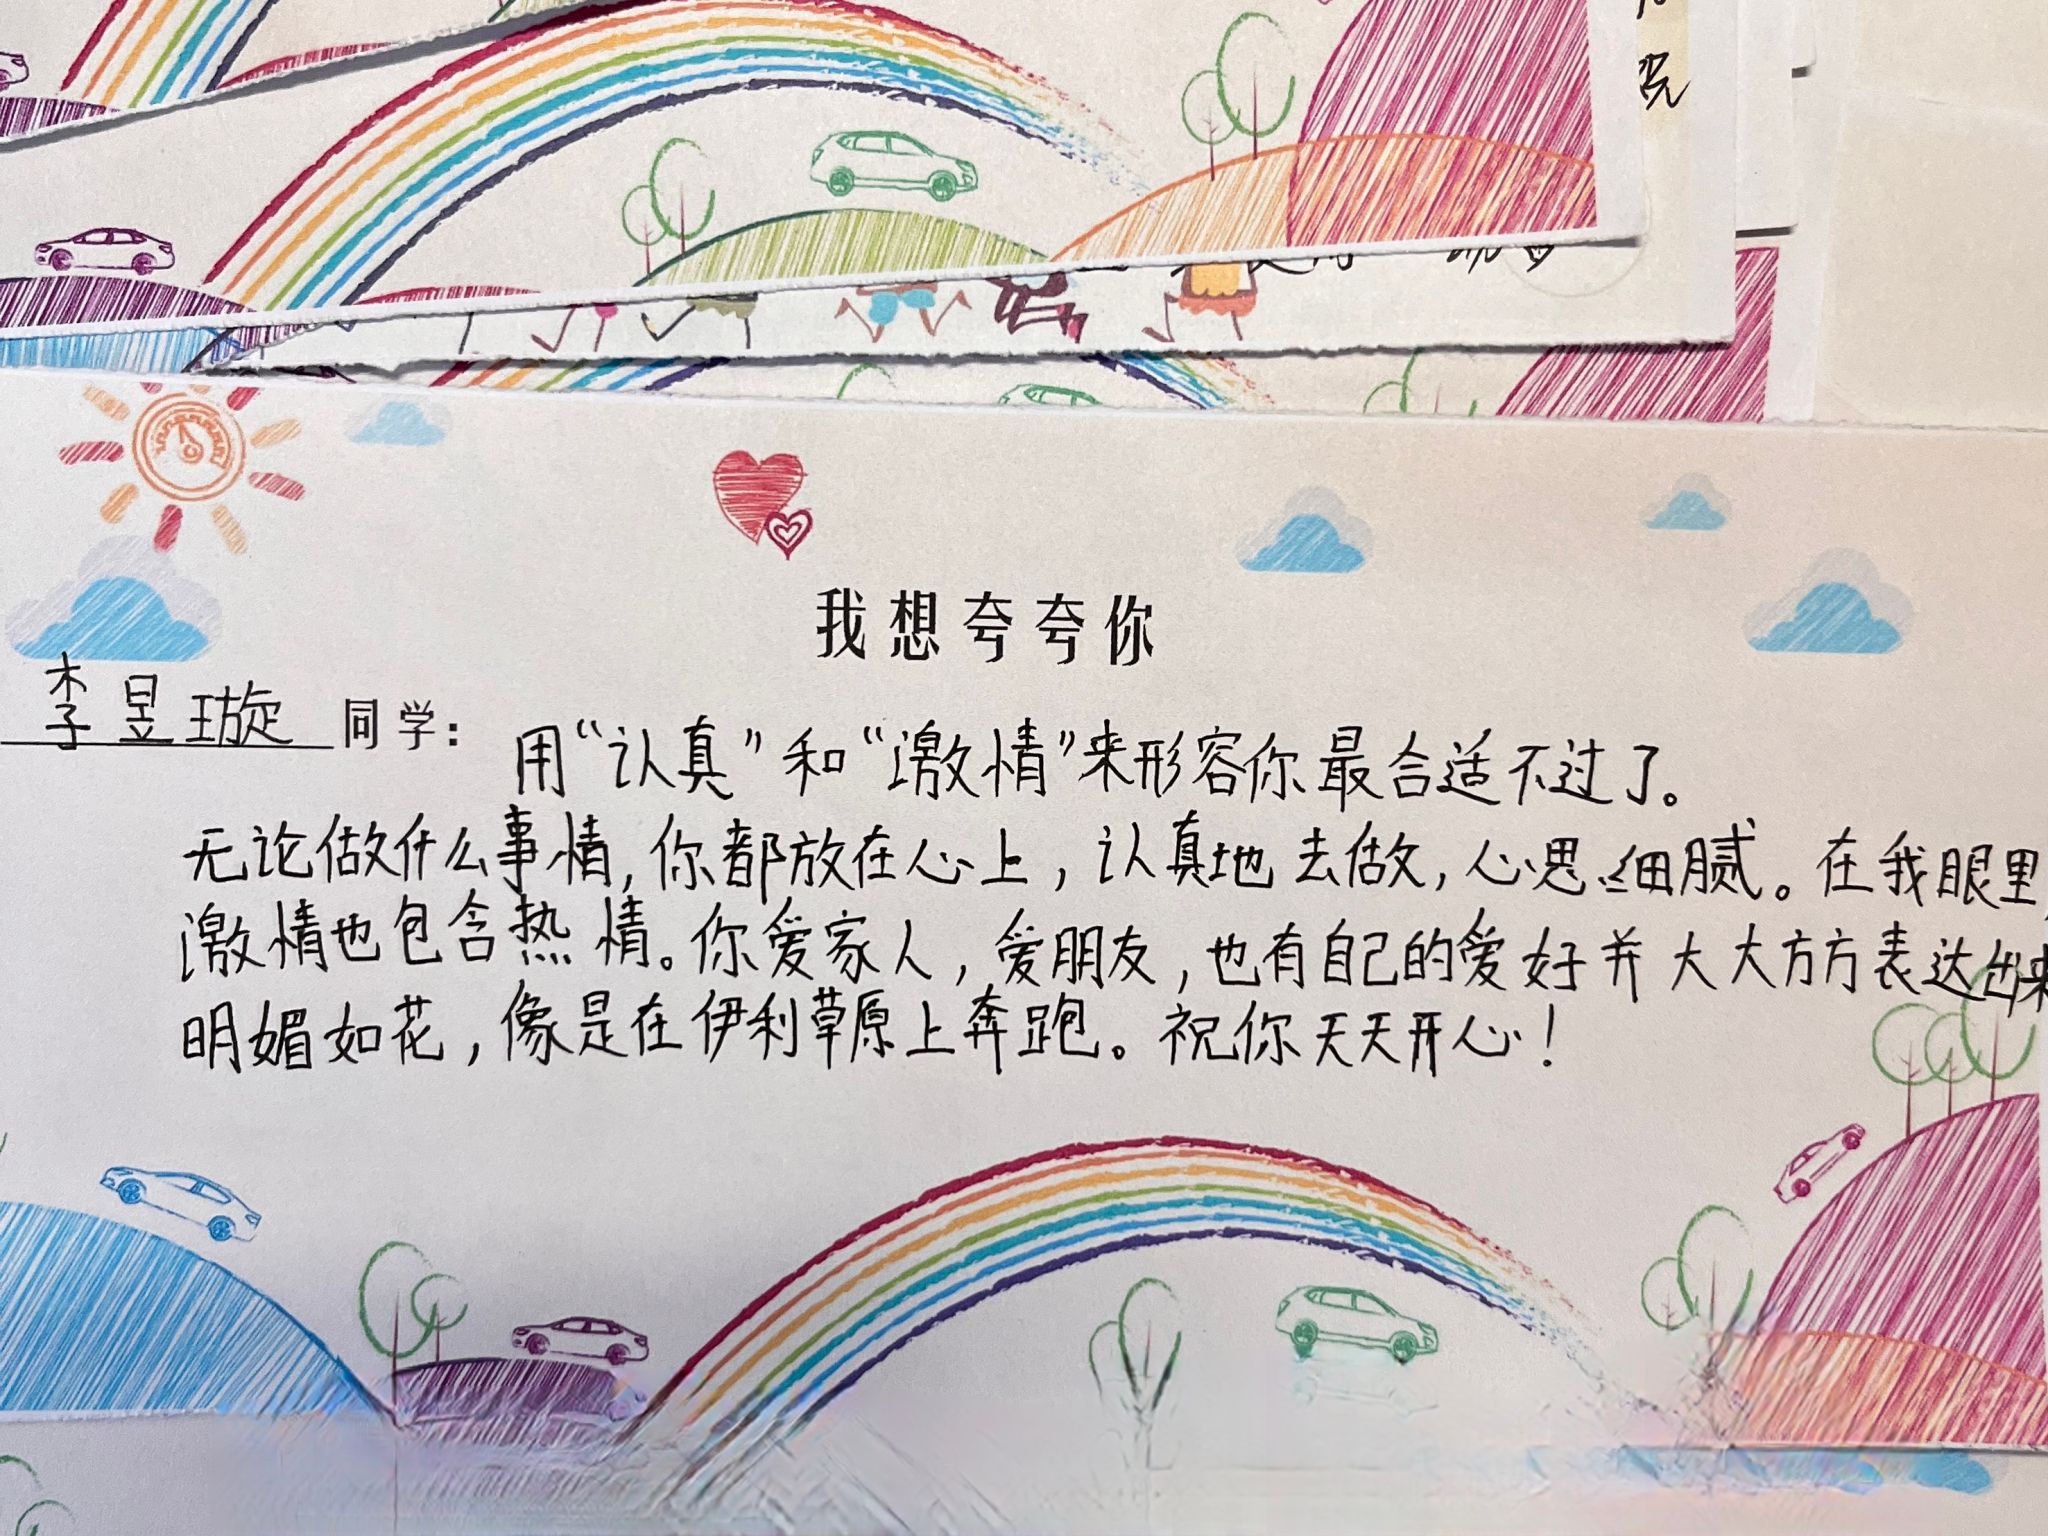 院
我想夸夸你
李昱璇 同学：用“认真”和“激情”来形容你最合适不过了。
无论做什么事情，你都放在心上，认真地去做，心思细腻。在我眼里，
激情也包含热情。你爱家人，爱朋友，也有自己的爱好并大大方方表达出来
明媚如花，像是在伊利草原上奔跑。祝你天天开心！